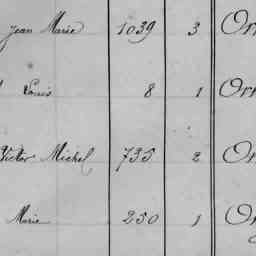 Jean Marie 1039 3
Louis 8 1
Victor Michel 735 2
Marie 250 1